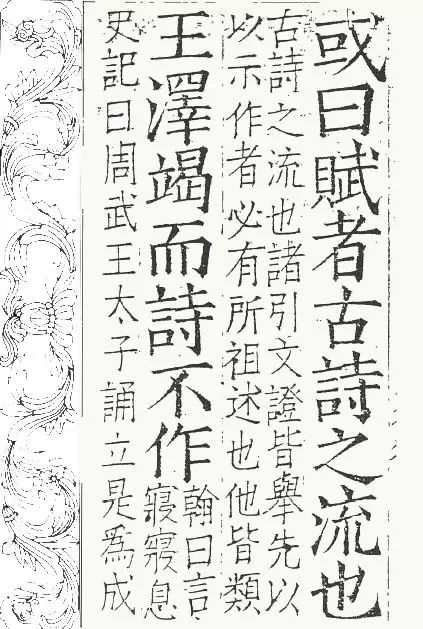 或曰賦者古詩之流也
古詩之流也諸引文證皆舉先以
以示作者必有所祖述也他皆類
王澤竭而詩不作
翰曰言
寢寢息
史記曰周武王太子誦立是爲成